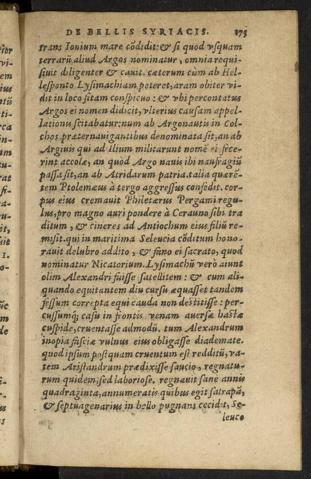 DE BELLIS SYRIACIS. 175
trans Ionium mare cõdidit: & si quod vsquam
terrarũ aliud Argos nominatur, omnia requi-
siuit diligenter & cauit. cæterum cùm ab Hel-
lesponto Lysimachiam peteret, aram obiter vi-
dit in loco sitam conspicuo: & vbi percontatus
Argos ei nomen didicit, vlterius causam appel-
lationis scitabatur: num ab Argonautis in Col-
chos præternauigantibus denominata sit, an ab
Argiuis qui ad Ilium militarunt nomẽ ei fece-
rint accolæ, an quòd Argo nauis ibi naufragiũ
passa sit, an ab Atridarum patria. talia quærẽ-
tem Ptolemæus à tergo aggressus confodit. cor-
pus eius cremauit Philetærus Pergami regu-
lus, pro magno auri pondere à Cerauno sibi tra
ditum, & cineres ad Antiochum eius filiũ re-
misit. qui in maritima Seleucia cõditum hono-
rauit delubro addito, & fano ei sacrato, quod
nominatur Nicatorium. Lysimachũ verò aiunt
olim Alexandri fuisse satellitem: & cum ali-
quando equitantem diu cursu æquasset tandem
fessum correpta equi cauda non destitisse: per-
cussumq; casu in frontis venam auersæ hastæ
cuspide, cruentasse admodũ. tum Alexandrum
inopia fasciæ vulnus eius obligasse diademate.
quod ipsum postquam cruentum est redditũ, va-
tem Aristandrum prædixisse saucio, regnatu-
rum quidem, sed laboriose. regnauit sane annis
quadraginta, annumeratis quibus egit satrapã,
& septuagenarius in bello pugnans cecidit, Se-
leuco